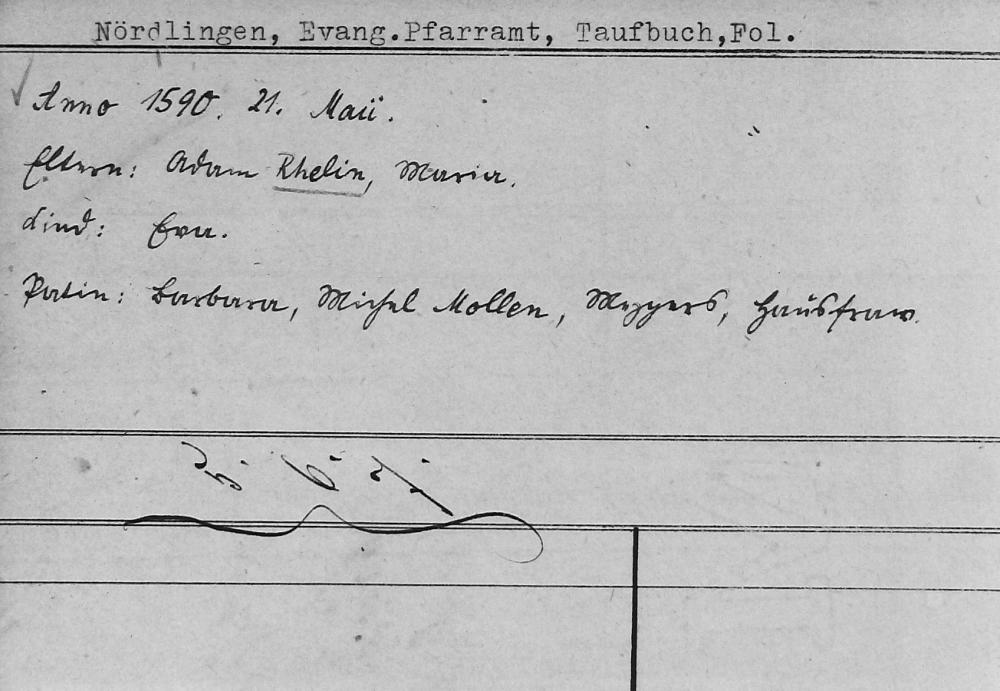 Nördlingen, Evang.Pfarramt, Taufbuch,Fol.
Anno 1590. 21. Maii.
Eltern: Adam Rhelin, Maria.
Kind: Eva.
Patin: Barbara, Michel Mollen, Mezgers, Haüsfraw.